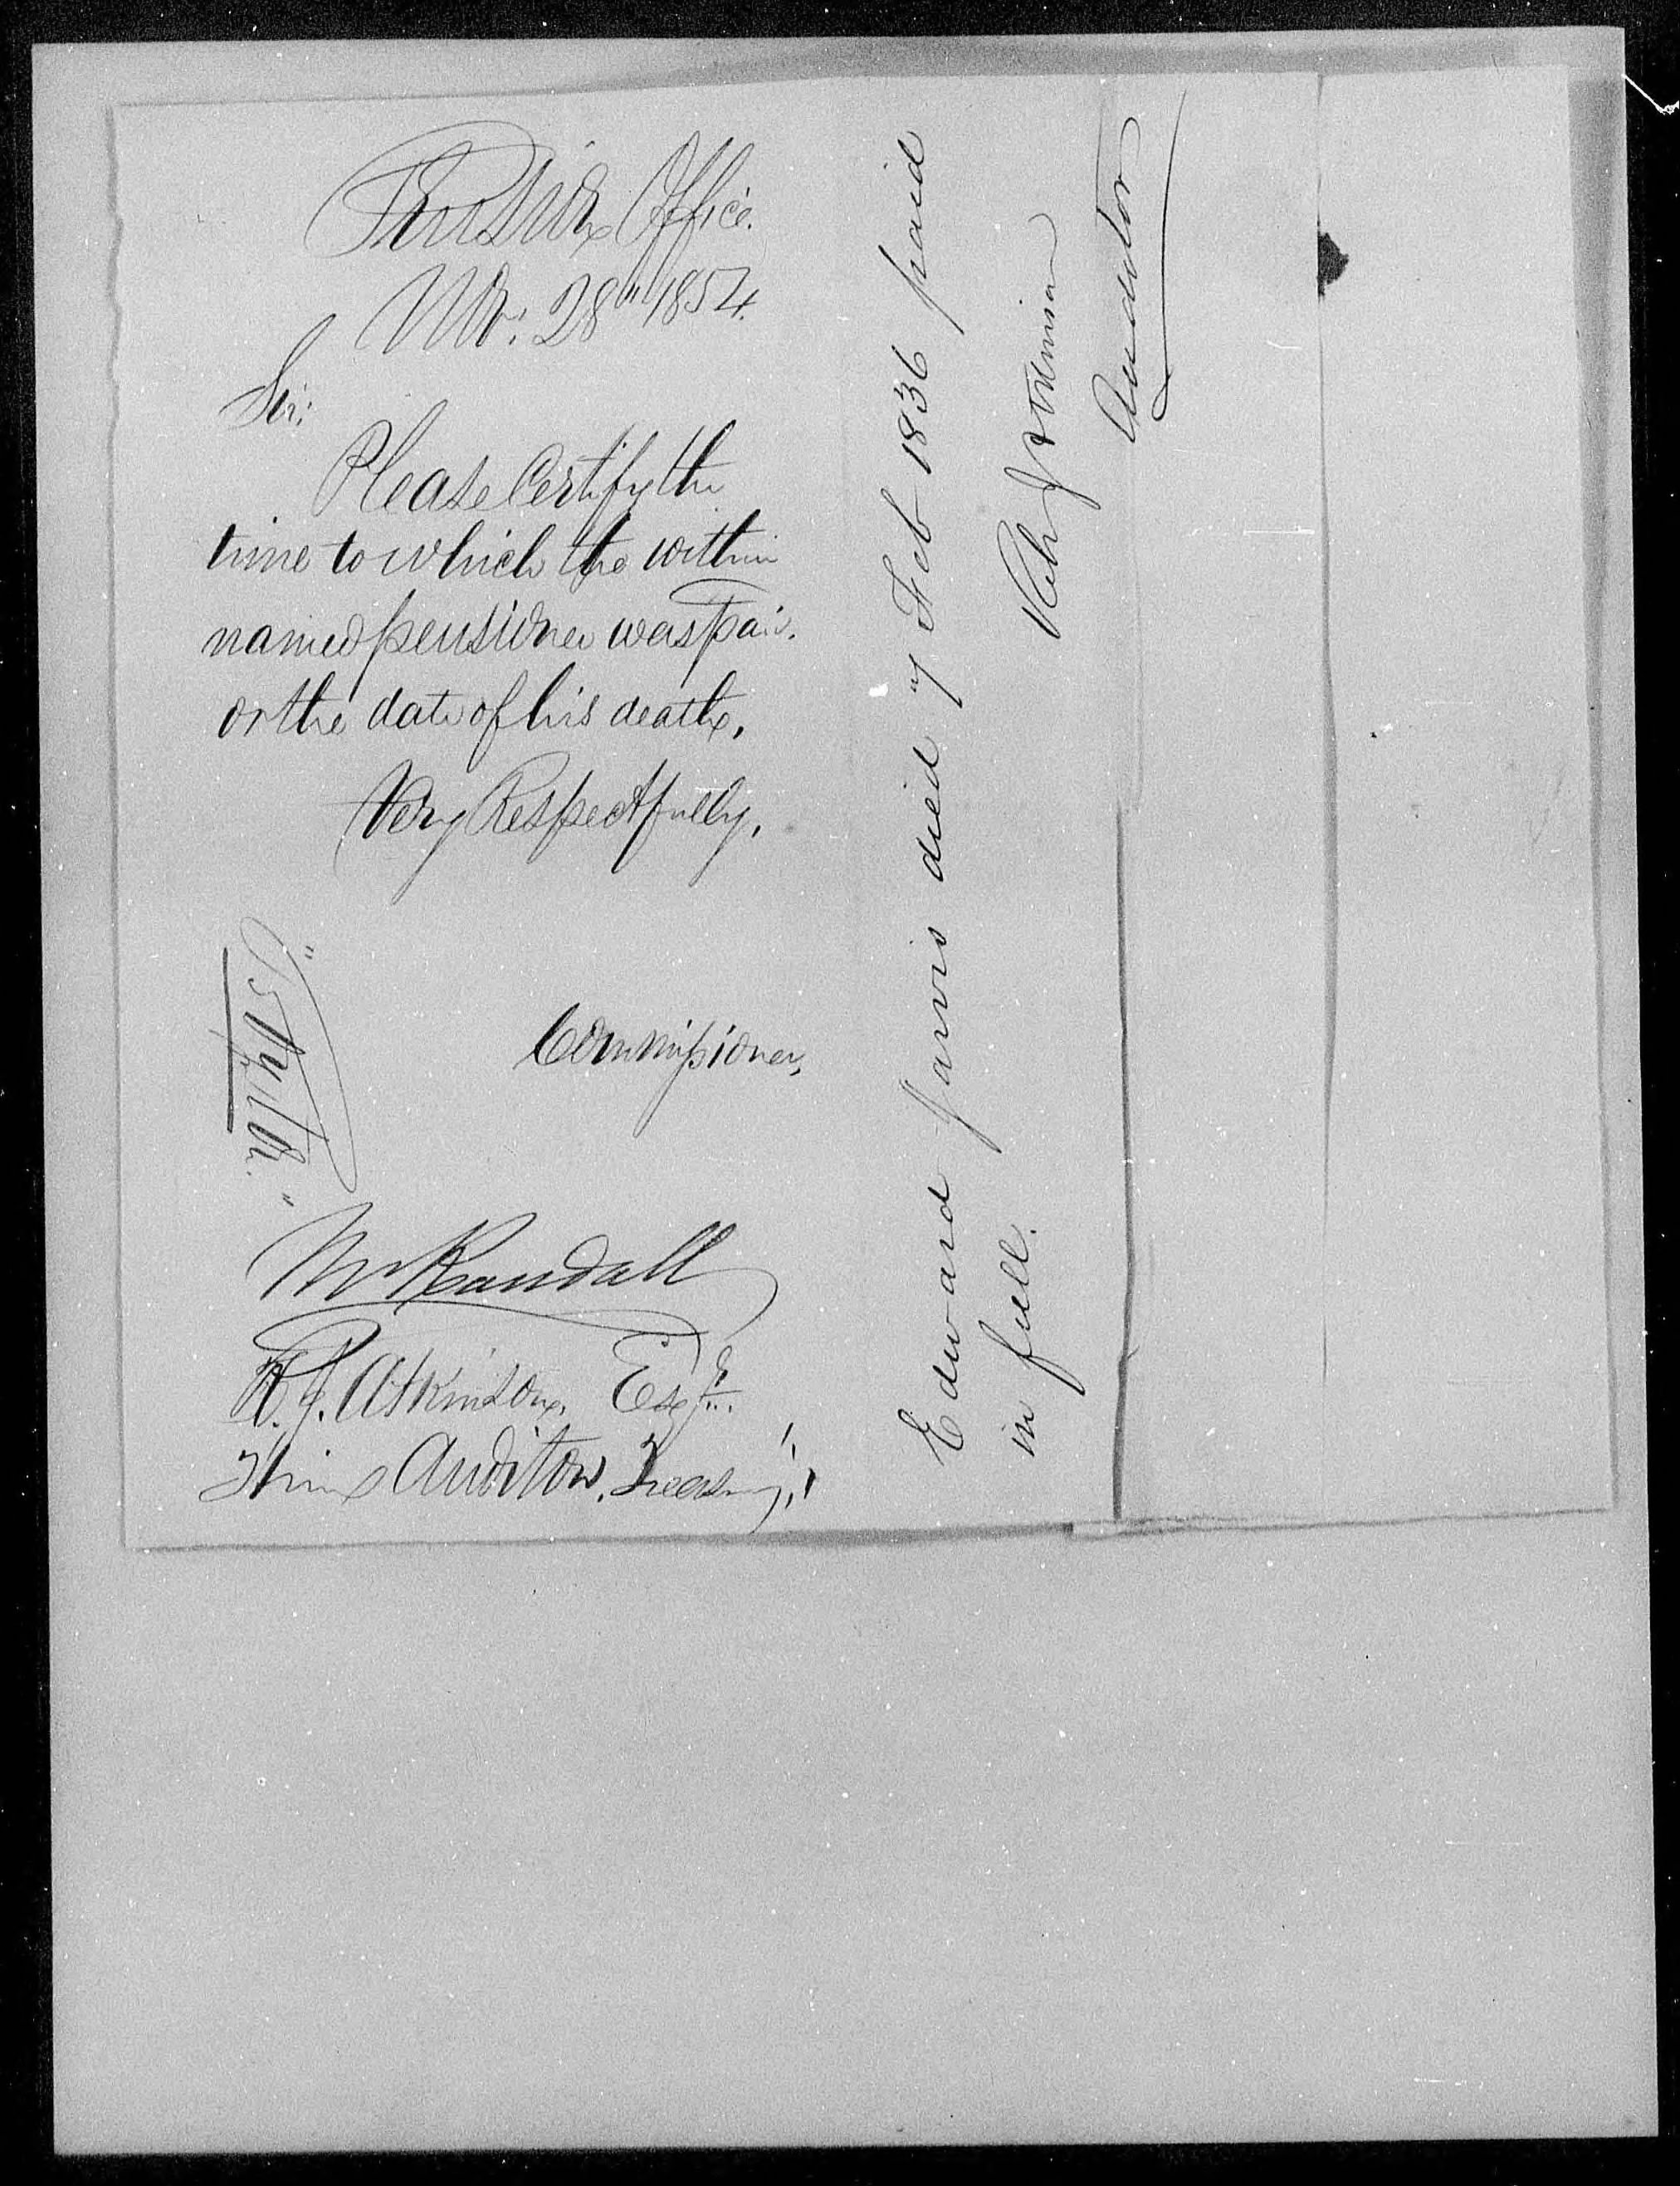 Pension Office.
Nov: 28" 1854.
Sir:
Please Certify the
time to which the within
named pensioner was paid.
or the date of his death,
Very Respectfully,
Commissioner,
Mr Randall
R. J. Atkinson, Esqr.
Third Auditor, Treasury,
Edward Jarvis died 7 Feb 1836 paid
in full.
Rob J Atkinson
Auditor